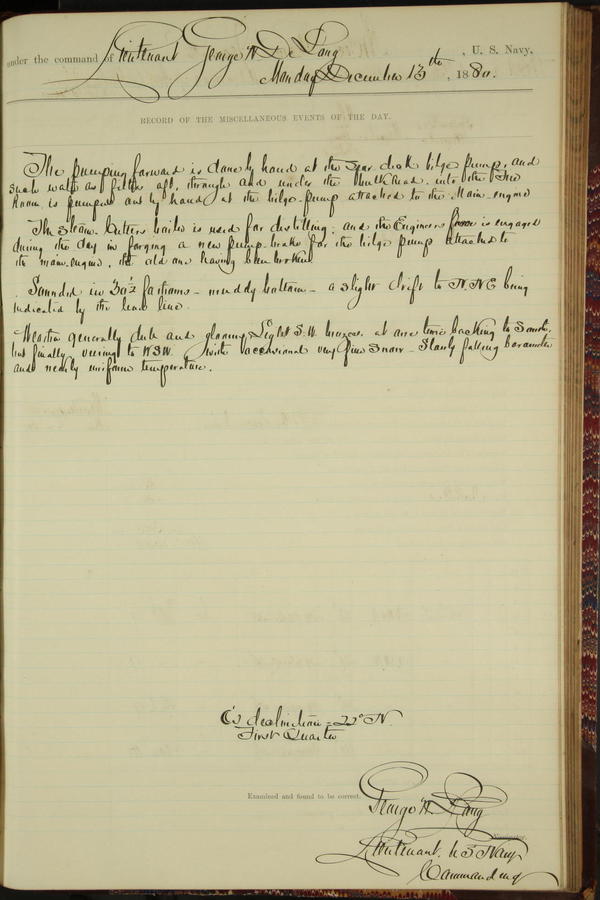 under the command of Lieutenant George W. De Long, U. S. Navy,
Monday December 13th, 1880.
RECORD OF THE MISCELLANEOUS EVENTS OF THE DAY.
The pumping forward is done by hand at the spar deck bilge pump, and
such water as filters aft, through and under the bulkhead, into the Fire
Room is pumped out by hand at the bilge-pump attached to the Main engine
The Steam Cutters boiler is used for distilling, and the Engineers force is engaged
during the day in forging a new pump-brake for the bilge pump attached to
the main engine, the old one having been broken
Sounded in 30½ fathoms - muddy bottom - a slight drift to N.NE being
indicated by the lead line.
Weather generally dull and gloomy. Light S.W. breezes at one time backing to South,
but finally veering to WSW. with occasional very fine snow - Slowly falling barometer
and nearly uniform temperature.
☾'s declination = 22° N
First Quarter
Examined and found to be correct.
George W. De Long
Navigator.
Lieutenant. U S Navy
Commanding